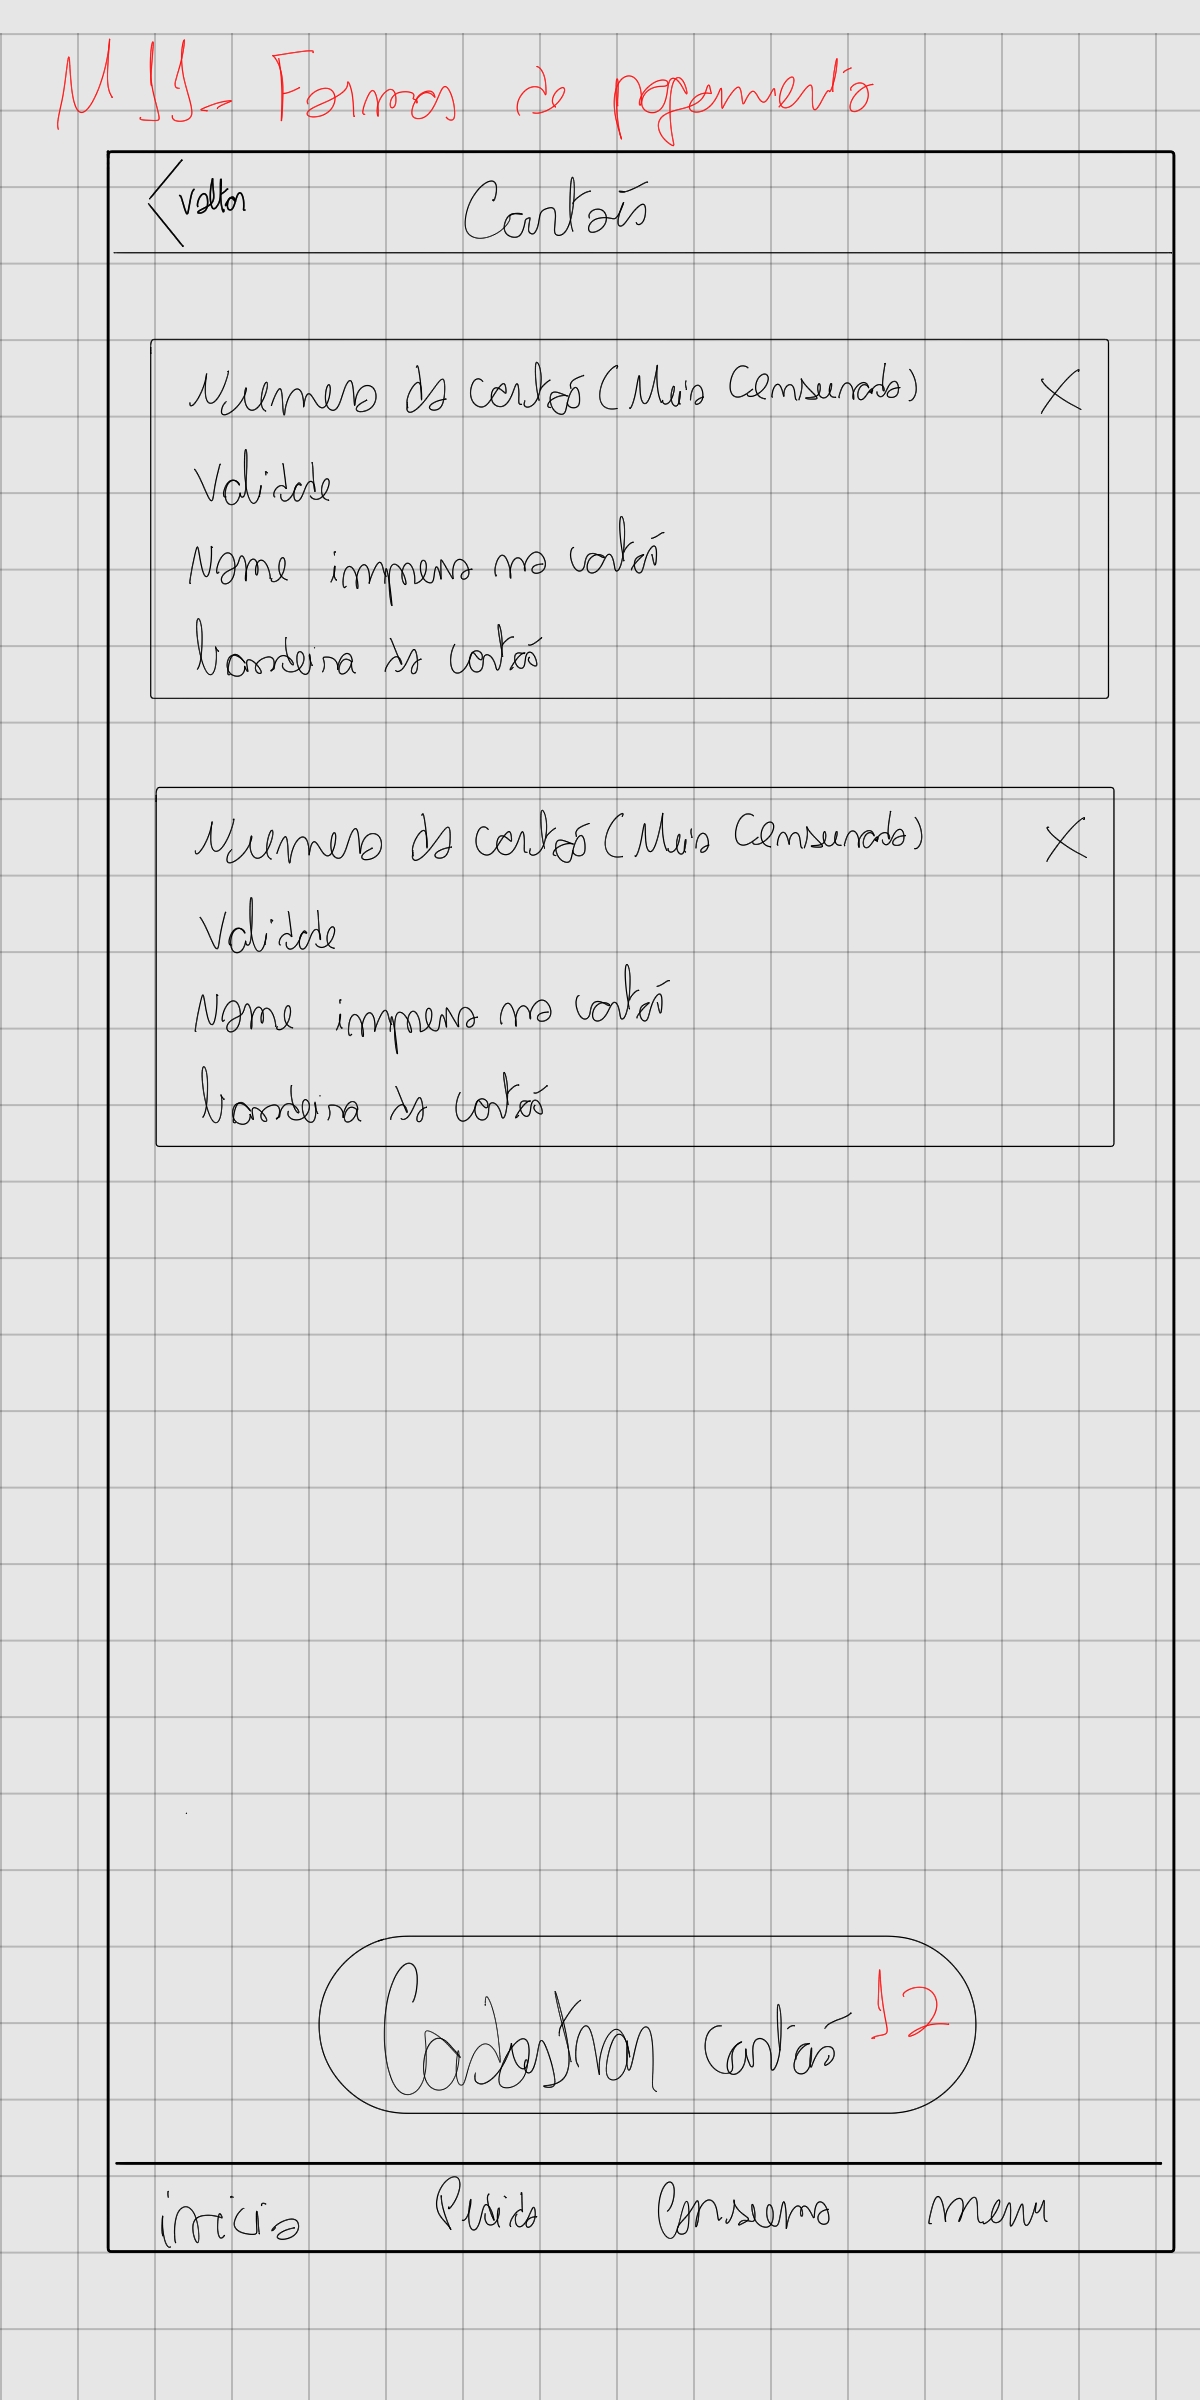 M 11- Formas de pagamento
Voltar
Cartões
Numero do cartão (Meio Censurado) X
Validade
Nome impresso no cartão
bandeira do cartão
Numero do cartão (Meio Censurado) X
Validade
Nome impresso no cartão
bandeira do cartão
Cadastrar cartão 12
inicio Pedido Consumo menu